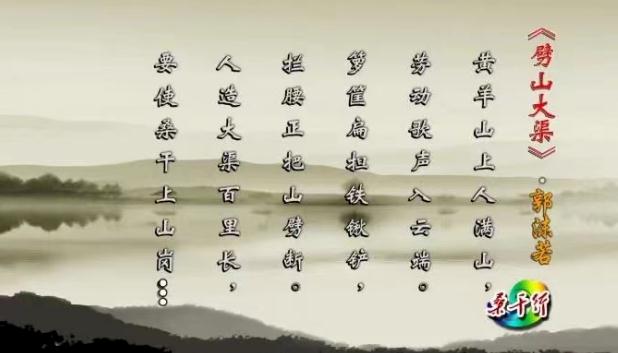 《劈山大渠》·郭沫若
黄羊山上人满山，
劳动歌声入云端。
箩筐扁担铁锹铲，
拦腰正把山劈断。
人造大渠百里长，
要使桑干上山岗…
桑干行